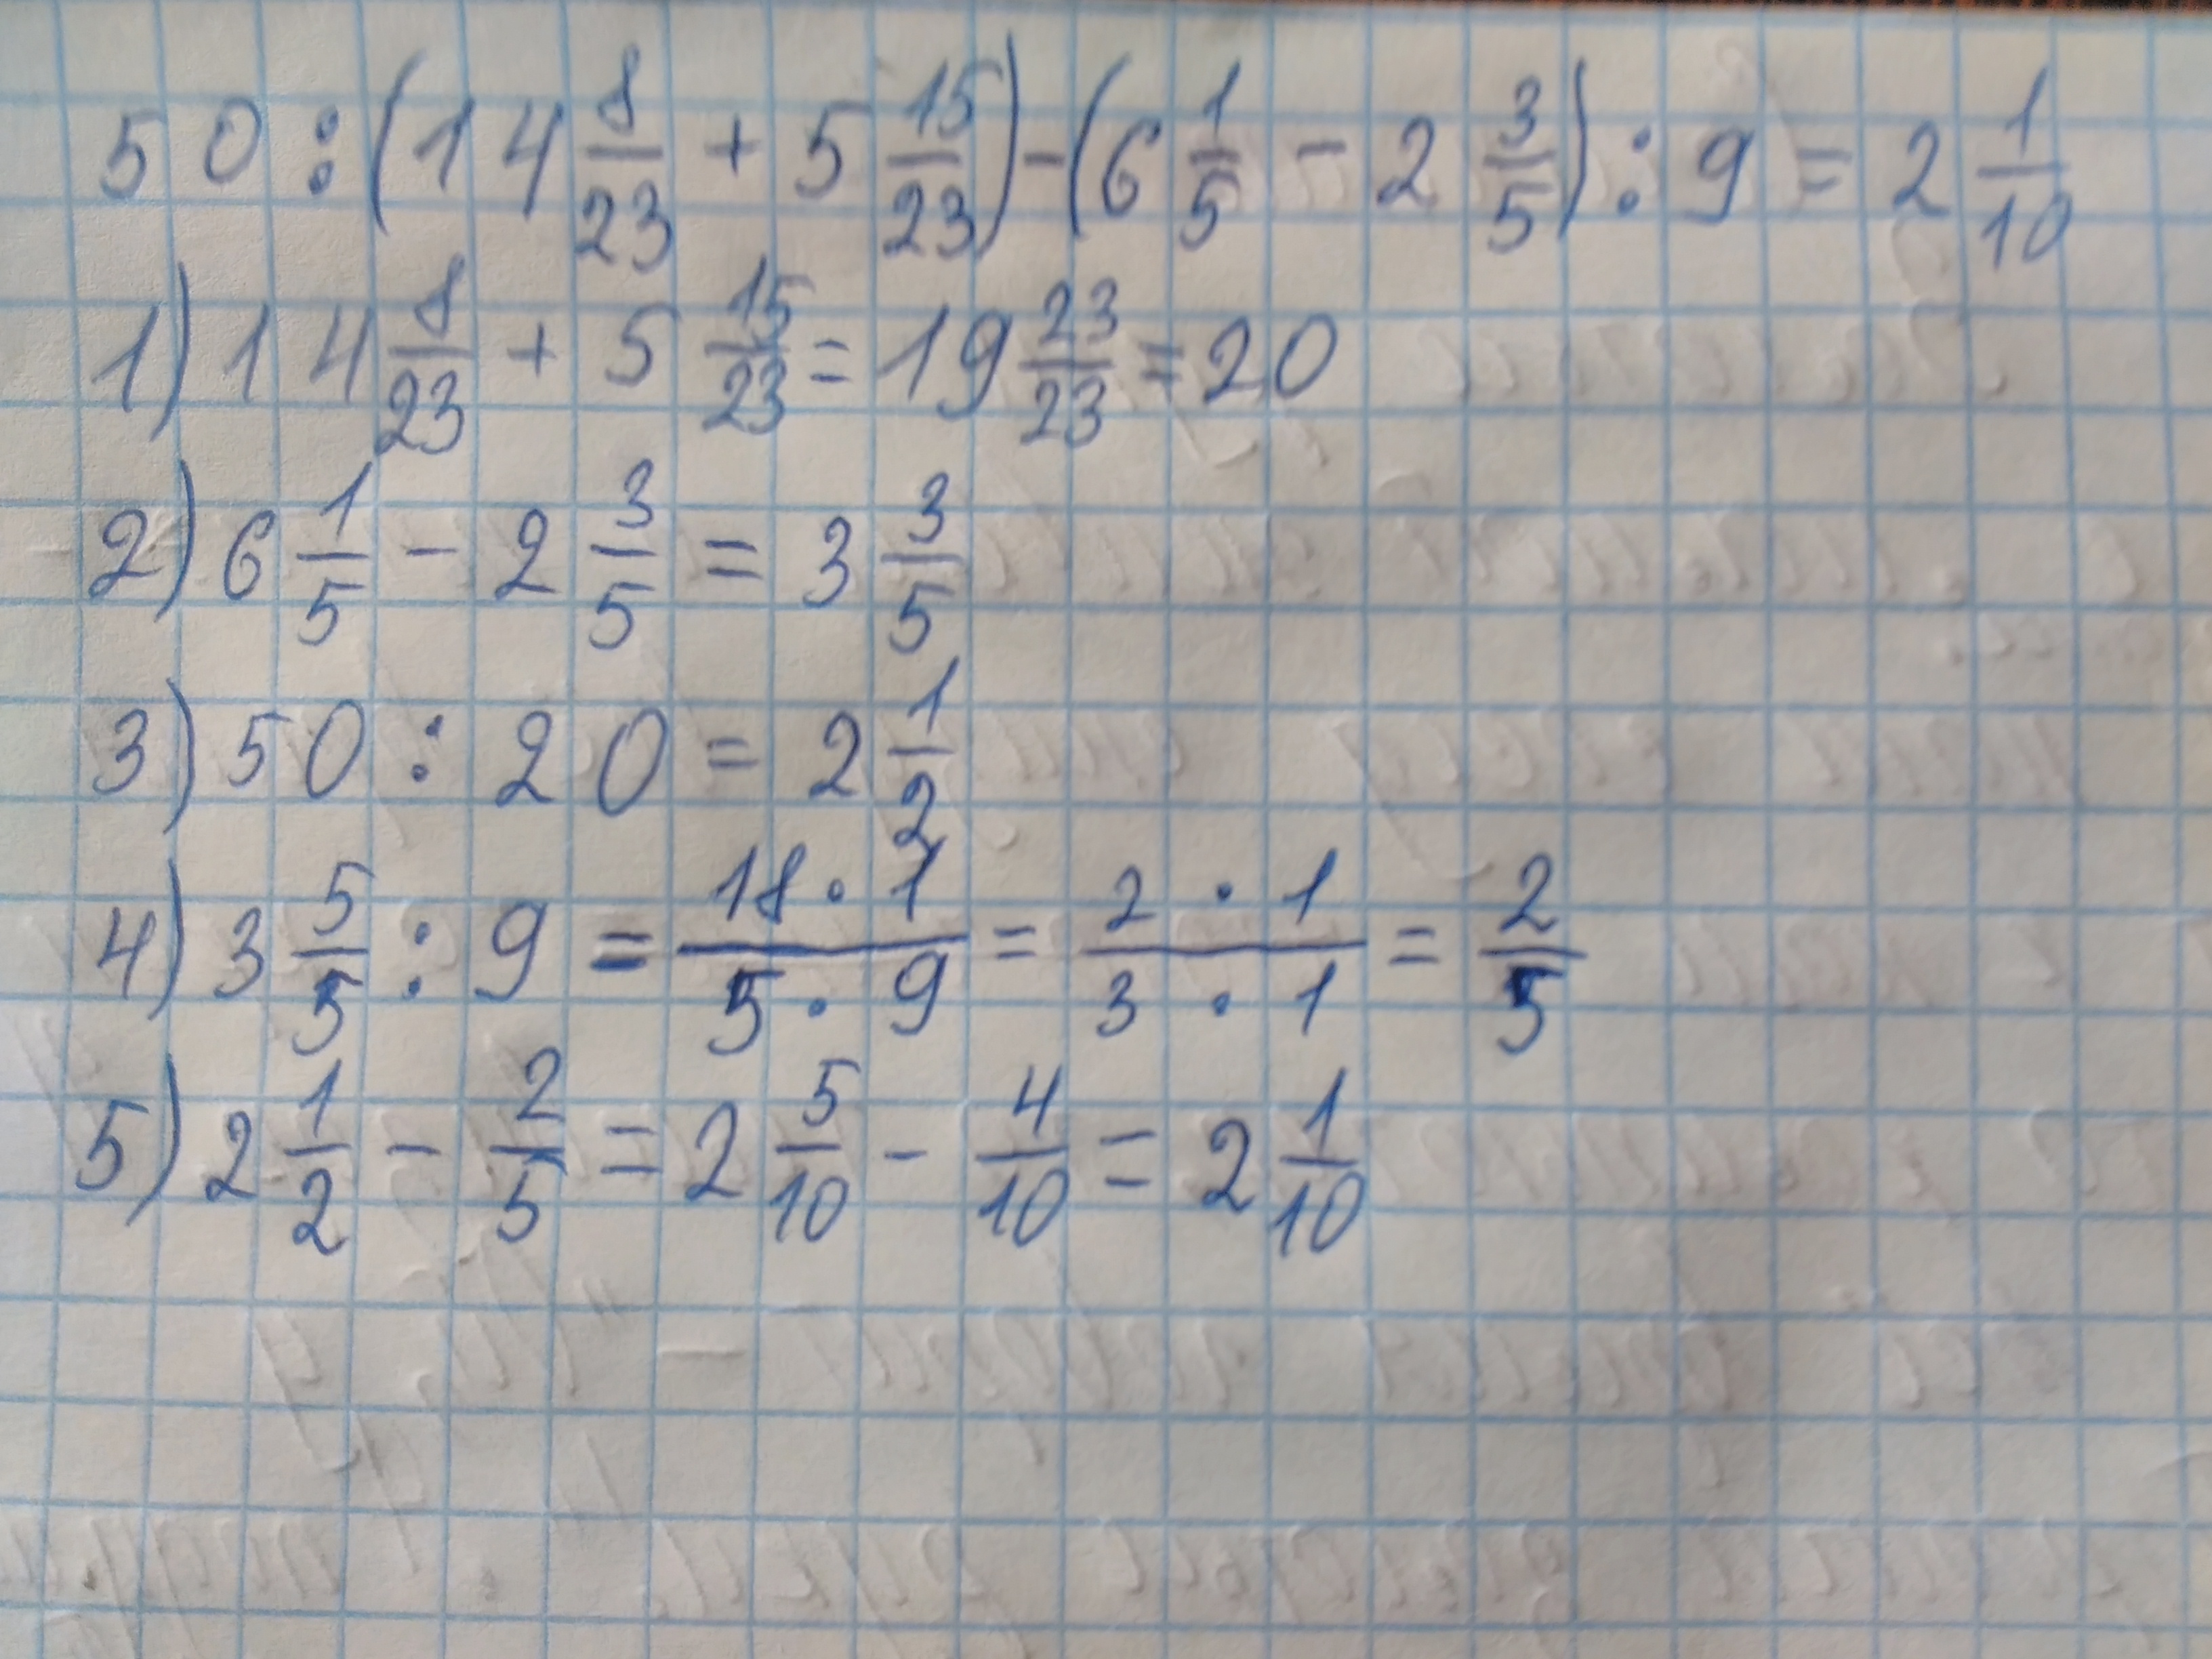 50 : (14 8/23 + 5 15/23) - (6 1/5 - 2 3/5) : 9 = 2 1/10
1) 14 8/23 + 5 15/23 = 19 23/23 = 20
2) 6 1/5 - 2 3/5 = 3 3/5
3) 50 : 20 = 2 1/2
4) 3 5/5 : 9 = 18 · 1/5 · 9 = 2 · 1/3 · 1 = 2/5
5) 2 1/2 - 2/5 = 2 5/10 - 4/10 = 2 1/10